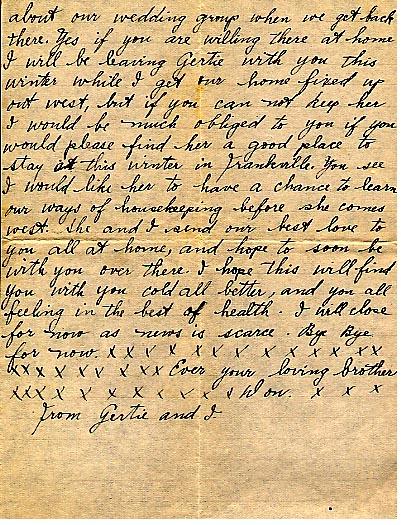 about our wedding group when we get back
there. Yes if you are willing there at home
I will be leaving Gertie with you this
winter while I get our home fixed up
out west, but if you can not keep her
I would be much obliged to you if you
would please find her a good place to
stay at this winter in Frankville. You see
I would like her to have a chance to learn
our ways of housekeeping before she comes
west. She and I send our best love to
you all at home, and hope to soon be
with you over there. I hope this will find
you with you cold all better, and you all
feeling in the best of health. I will close
for now as news is scarce. Bye Bye
for now. x x x x x x x x x x x x x
x x x x x x x x x Ever your loving brother
x x x x x x x x x x x x x
From Gertie and I.